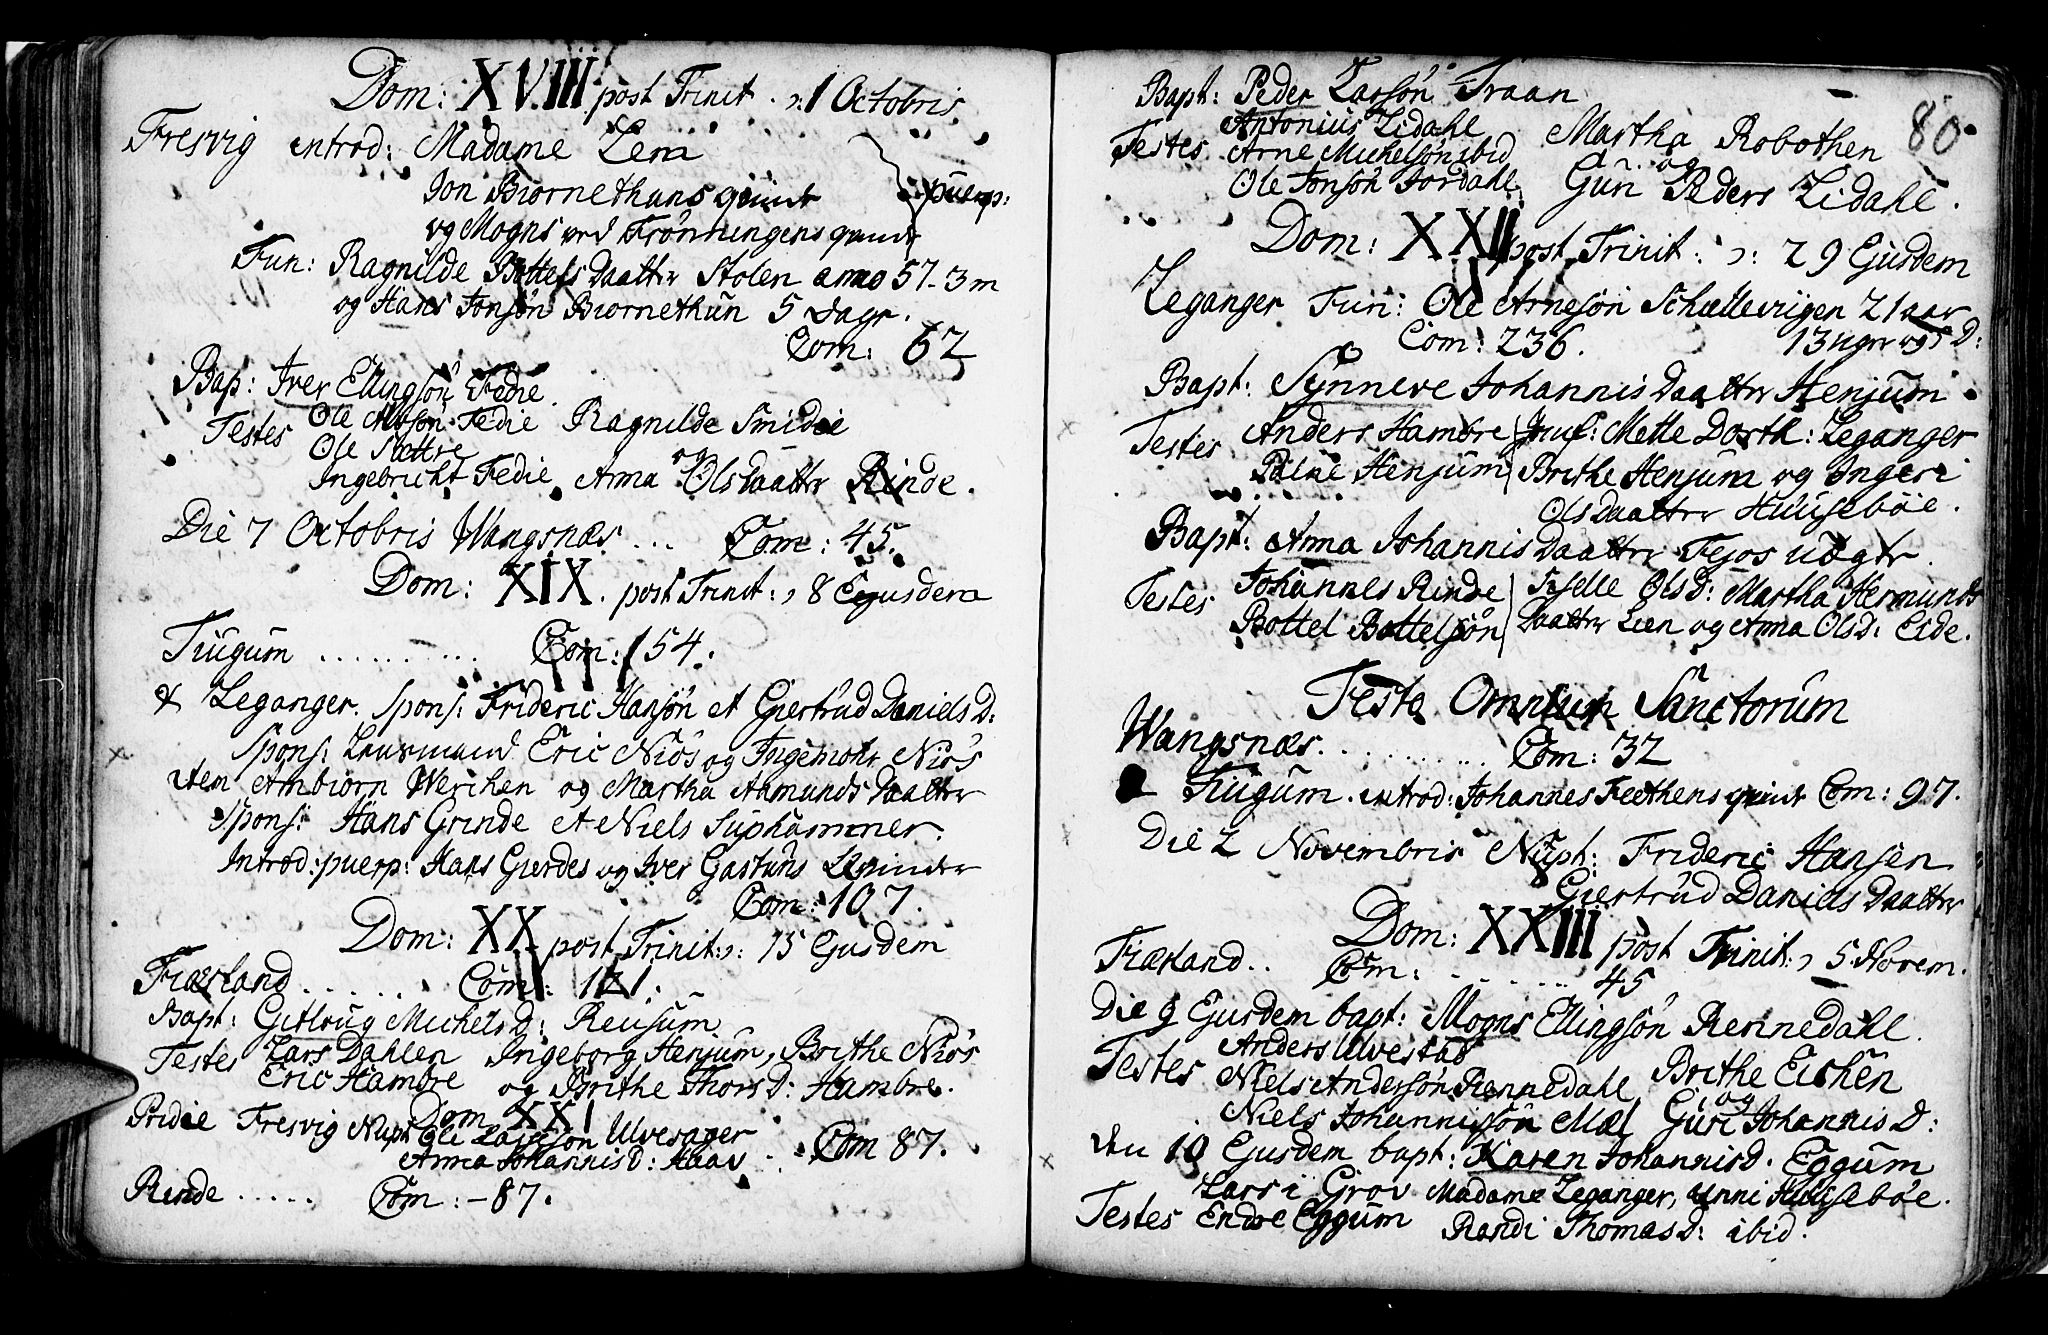 Dom: XVIII post Trinit. ɔ: 1 Octobris.
Fresvig introd: Madame Lem
Jon Biornethuns quinde puerp:
og Mogns ved Frønningens quinde
Fun: Ragnilde Bottels Daatter Stolen anno 57. 3 m
og Hans Jonsøn Biornethun 5 Dage.
Com: 62
Bap: Iver Ellingsøn Fedie.
Testes Ole Fedie Ragnilde Smidie
Ole Sættre og
Ingebricht Fedie Anna Olsdaatter Rinde.
Die 7 Octobris Wangsnæs ... Com: 45.
Dom: XIX. post Trinit: ɔ 8 Ejusdem
Tiugum .......... Com: 154.
& Leganger. Spons: Frideric Hansøn et Giertrud Daniels D:
Spons: Eric Niøs og Ingemohr Niøs
item Ambiorn Werchen og Martha Aamunds Daatter
Spons: Hans Grinde et Niels Suphammer.
Introd: puerp: Hans Gierdes og Iver Gastuns
Com: 107.
Dom: XX post Trinit: ɔ: 15 Ejusdem
Fiærland ....... Com: 121.
Bapt: Gitlaug Michels D: Reusum
Testes Lars Dahlen Ingeborg Henjum, Brithe Niøs
Eric Hambre og Brithe Thors D: Hambre.
Dom XXI
Pridie Fresvig Nupt Ole Larssøn Ulvesager
Anna Johannis D: Haav .. Com 87.
Rinde ..... Com: - 87.
80.
Bapt: Peder Larsøn Traan
Testes Antonius Lidahl Martha Robothen
Arne Michelsøn ibid og
Ole Jonsøn Jordahl Guri Peders Lidahl.
Dom: XXII post Trinit: ɔ: 29 Ejusdem
Leganger Fun: Ole Arnesøn Schællevigen 21 aar
Com: 236. 13 uger og 5 D:
Bapt: Synneve Johannis Daatter Henjum
Testes Anders Hambre Jnuf: Mette Dorth: Leganger
Henjum Brithe Henjum og Ingeri
Olsdaatter Huusebøe.
Bapt: Anna Johannis Daatter Fejos uægte.
Testes Johannes Rinde Siselle Ols D: Martha Hermunds
Bottel Bottelsøn Daatter Lien og Anna Ols D: Eide.
Festo Omnium Sanctorum
Wangsnæs. .......... Com: 32
Tiugum. introd: Johannes Feethens quinde Com: 97.
Die 2 Novembris Nupt: Frideric Hansen
Giertrud Daniels Daatter
Dom: XXIII post Trinit: ɔ 5 Novem.
Fiærland.. Com: ......... 45
Die 9 Ejusdem bapt: Mogns Ellingsøn Rennedahl.
Anders Ulvestad
Testes Niels Andersøn Rennedahl Brithe Eithen
og
Niels Johannissøn Mæl Guri Johannis D:
den 10 Ejusdem bapt: Karen Johannis D. Eggum
Lars i Grov Madame Leganger, Unni Huusebøe.
Testes Endre Eggum Randi Thomas D: ibid.